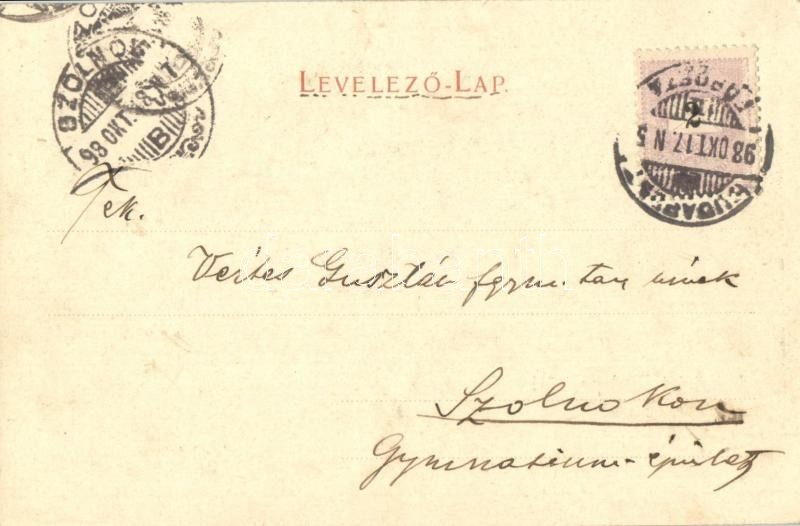 SZOLNOK
98 OKT.
B
LEVELEZŐ-LAP.
BUDAPEST
98 OKT 17. N 5
2
Tek.
Vértes Gusztáv fgymn. tan. úrnek
Szolnokon
Gymnasium-épület